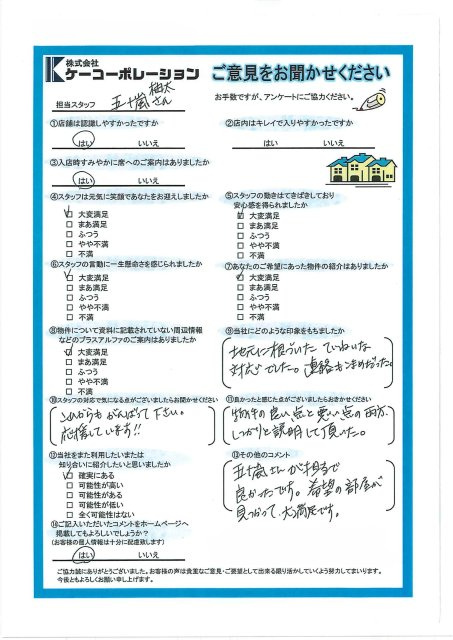 株式会社
ケーコーポレーション
ご意見をお聞かせください
担当スタッフ 五十嵐 柚太さん
お手数ですが、アンケートにご協力ください。
①店舗は認識しやすかったですか
はい いいえ
②店内はキレイで入りやすかったですか
はい いいえ
③入店時すみやかに席へのご案内はありましたか
はい いいえ
④スタッフは元気に笑顔であなたをお迎えしましたか
☑ 大変満足
□ まあ満足
□ ふつう
□ やや不満
□ 不満
⑤スタッフの動きはてきぱきしており
安心感を得られましたか
☑ 大変満足
□ まあ満足
□ ふつう
□ やや不満
□ 不満
⑥スタッフの言動に一生懸命さを感じられましたか
☑ 大変満足
□ まあ満足
□ ふつう
□ やや不満
□ 不満
⑦あなたのご希望にあった物件の紹介はありましたか
☑ 大変満足
□ まあ満足
□ ふつう
□ やや不満
□ 不満
⑧物件について資料に記載されていない周辺情報
などのプラスアルファのご案内はありましたか
☑ 大変満足
□ まあ満足
□ ふつう
□ やや不満
□ 不満
⑨当社にどのような印象をもちましたか
地元に根づいた ていねいな
対応でした。連絡もこまめだった
⑩スタッフの対応で気になる点がございましたらお聞かせください
これからもがんばって下さい。
応援しています!!
⑪良かったと感じた点がございましたらおきかせください
物件の良い点と悪い点の両方、
しっかりと説明して頂いた。
⑫当社をまた利用したいまたは
知り合いに紹介したいと思いましたか
☑ 確実にある
□ 可能性が高い
□ 可能性がある
□ 可能性が低い
□ 全く可能性はない
⑬その他のコメント
五十嵐さんが担当で
良かったです。希望の部屋が
見つかって、大満足です。
⑭ご記入いただいたコメントをホームページへ
掲載してもよろしいでしょうか？
(お客様の個人情報は十分に配慮致します)
はい いいえ
ご協力誠にありがとうございました。お客様の声は貴重なご意見・ご要望として出来る限り活かしていくよう努力してまいります。
今後ともよろしくお願い申し上げます。